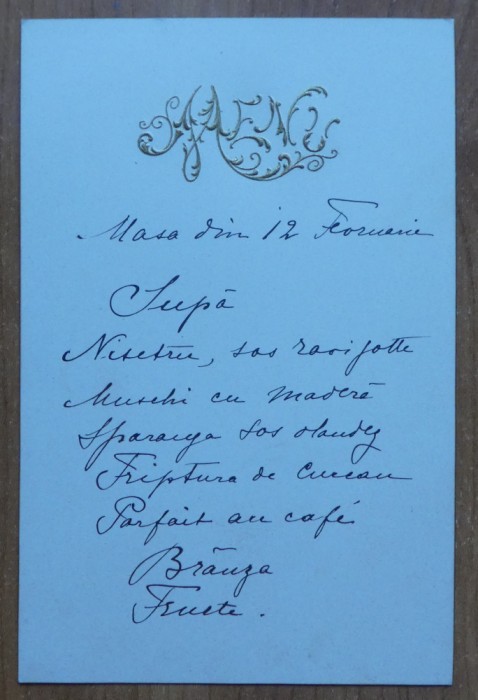 MENU
Masa din 12 Februarie
Supă
Nisetru, sos ravigotte
Muschi cu maderă
Sparanga sos olandez
Friptura de Curcan
Parfait au café
Brânza
Fructe.